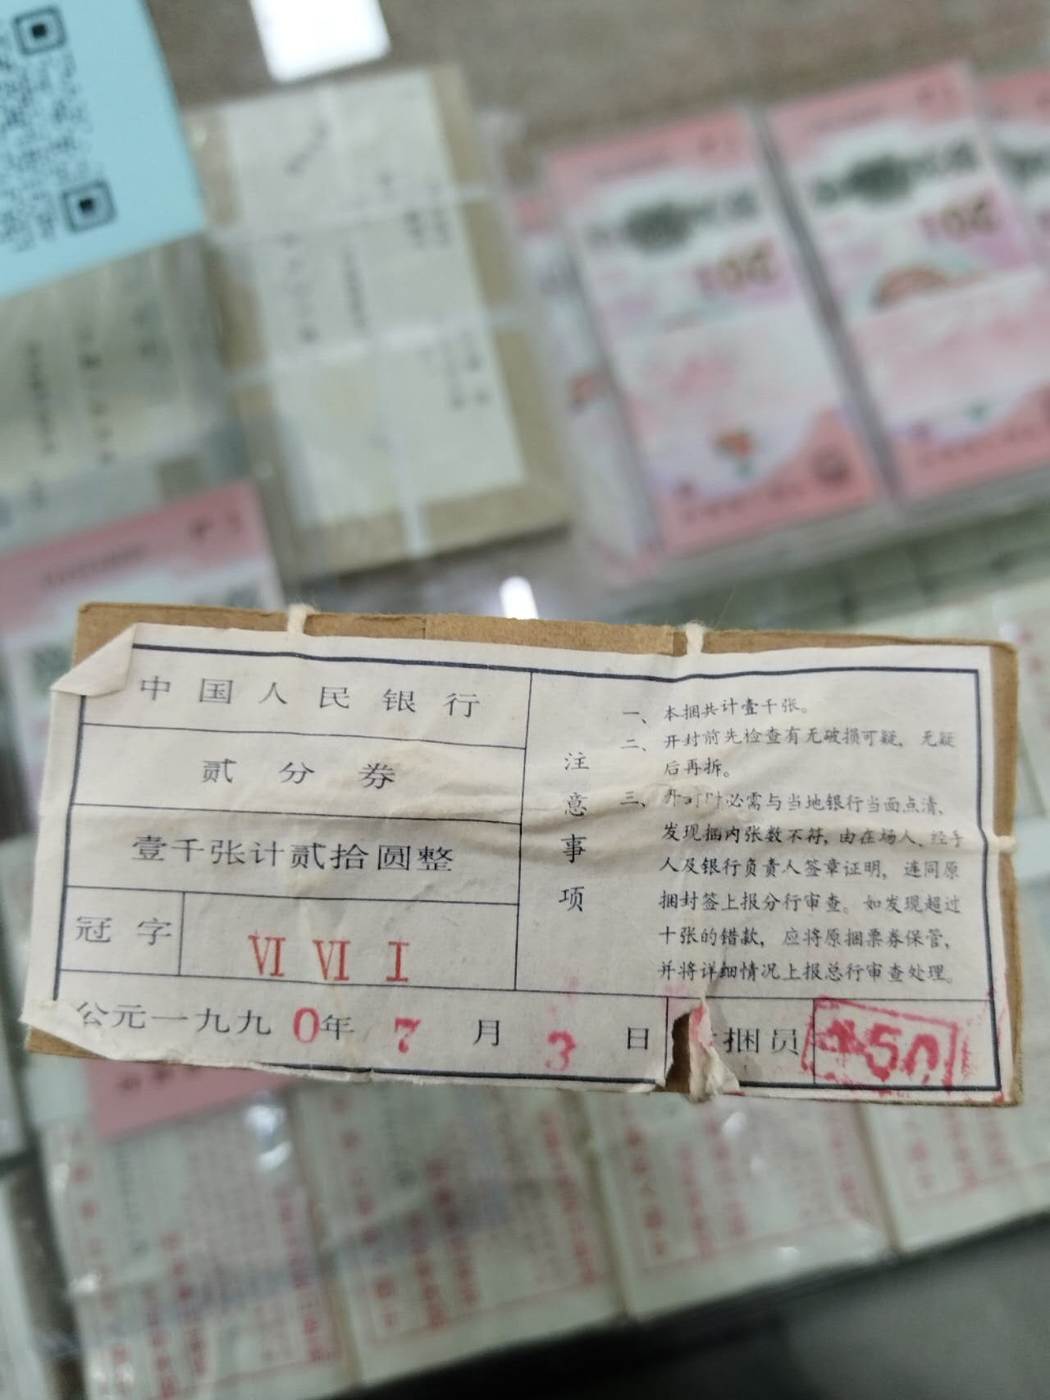 中国人民银行
贰分券
壹千张计贰拾圆整
冠字
VI VI I
公元一九九0年7月3日
捆员
50
注意事项
一、本捆共计壹千张。
二、开封前先检查有无破损可疑，无疑
后再拆。
三、开封时必需与当地银行当面点清，
发现捆内张数不符，由在场人、经手
人及银行负责人签章证明，连同原
捆封签上报分行审查。如发现超过
十张的错款，应将原捆票券保管，
并将详细情况上报总行审查处理。